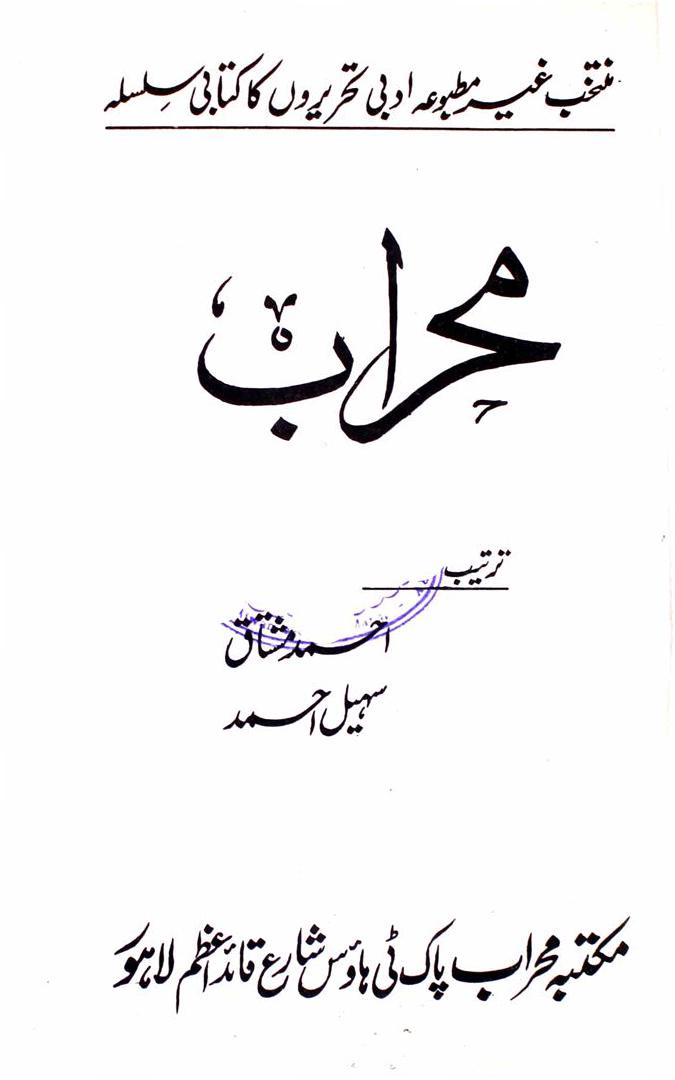 منتخب غیر مطبوعہ ادبی تحریروں کا کتابی سلسلہ
محراب
ترتیب
احمد مشتاق
سہیل احمد
مکتبہ محراب پاک ٹی ہاؤس شارع قائد اعظم لاہور